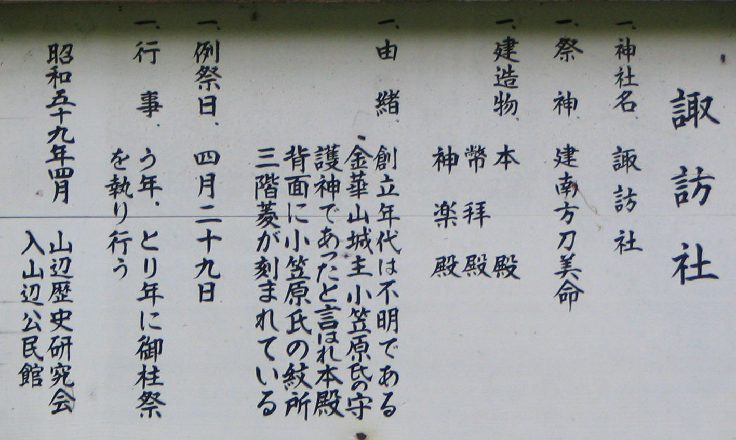 諏訪社
一、神社名、諏訪社
一、祭神、建南方刀美命
一、建造物、本殿
幣拝殿
神楽殿
一、由緒、創立年代は不明である
金華山城主小笠原氏の守
護神であったと言はれ本殿
背面に小笠原氏の紋所
三階菱が刻まれている
一、例祭日、四月二十九日
一、行事、う年、とり年に御柱祭
を執り行う
昭和五十九年四月 山辺歴史研究会
入山辺公民館